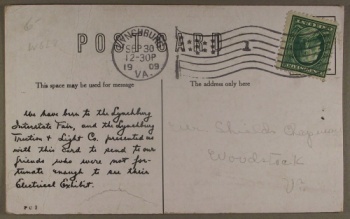 POST CARD
LYNCHBURG
SEP 30
12-30P
1909
VA.
1
This space may be used for message
The address only here
We have been to the Lynchburg
Interstate Fair, and the Lynchburg
Traction & Light Co. presented us
with this card to send to our
friends who were not for-
tunate enough to see their
Electrical Exhibit.
Woodstock